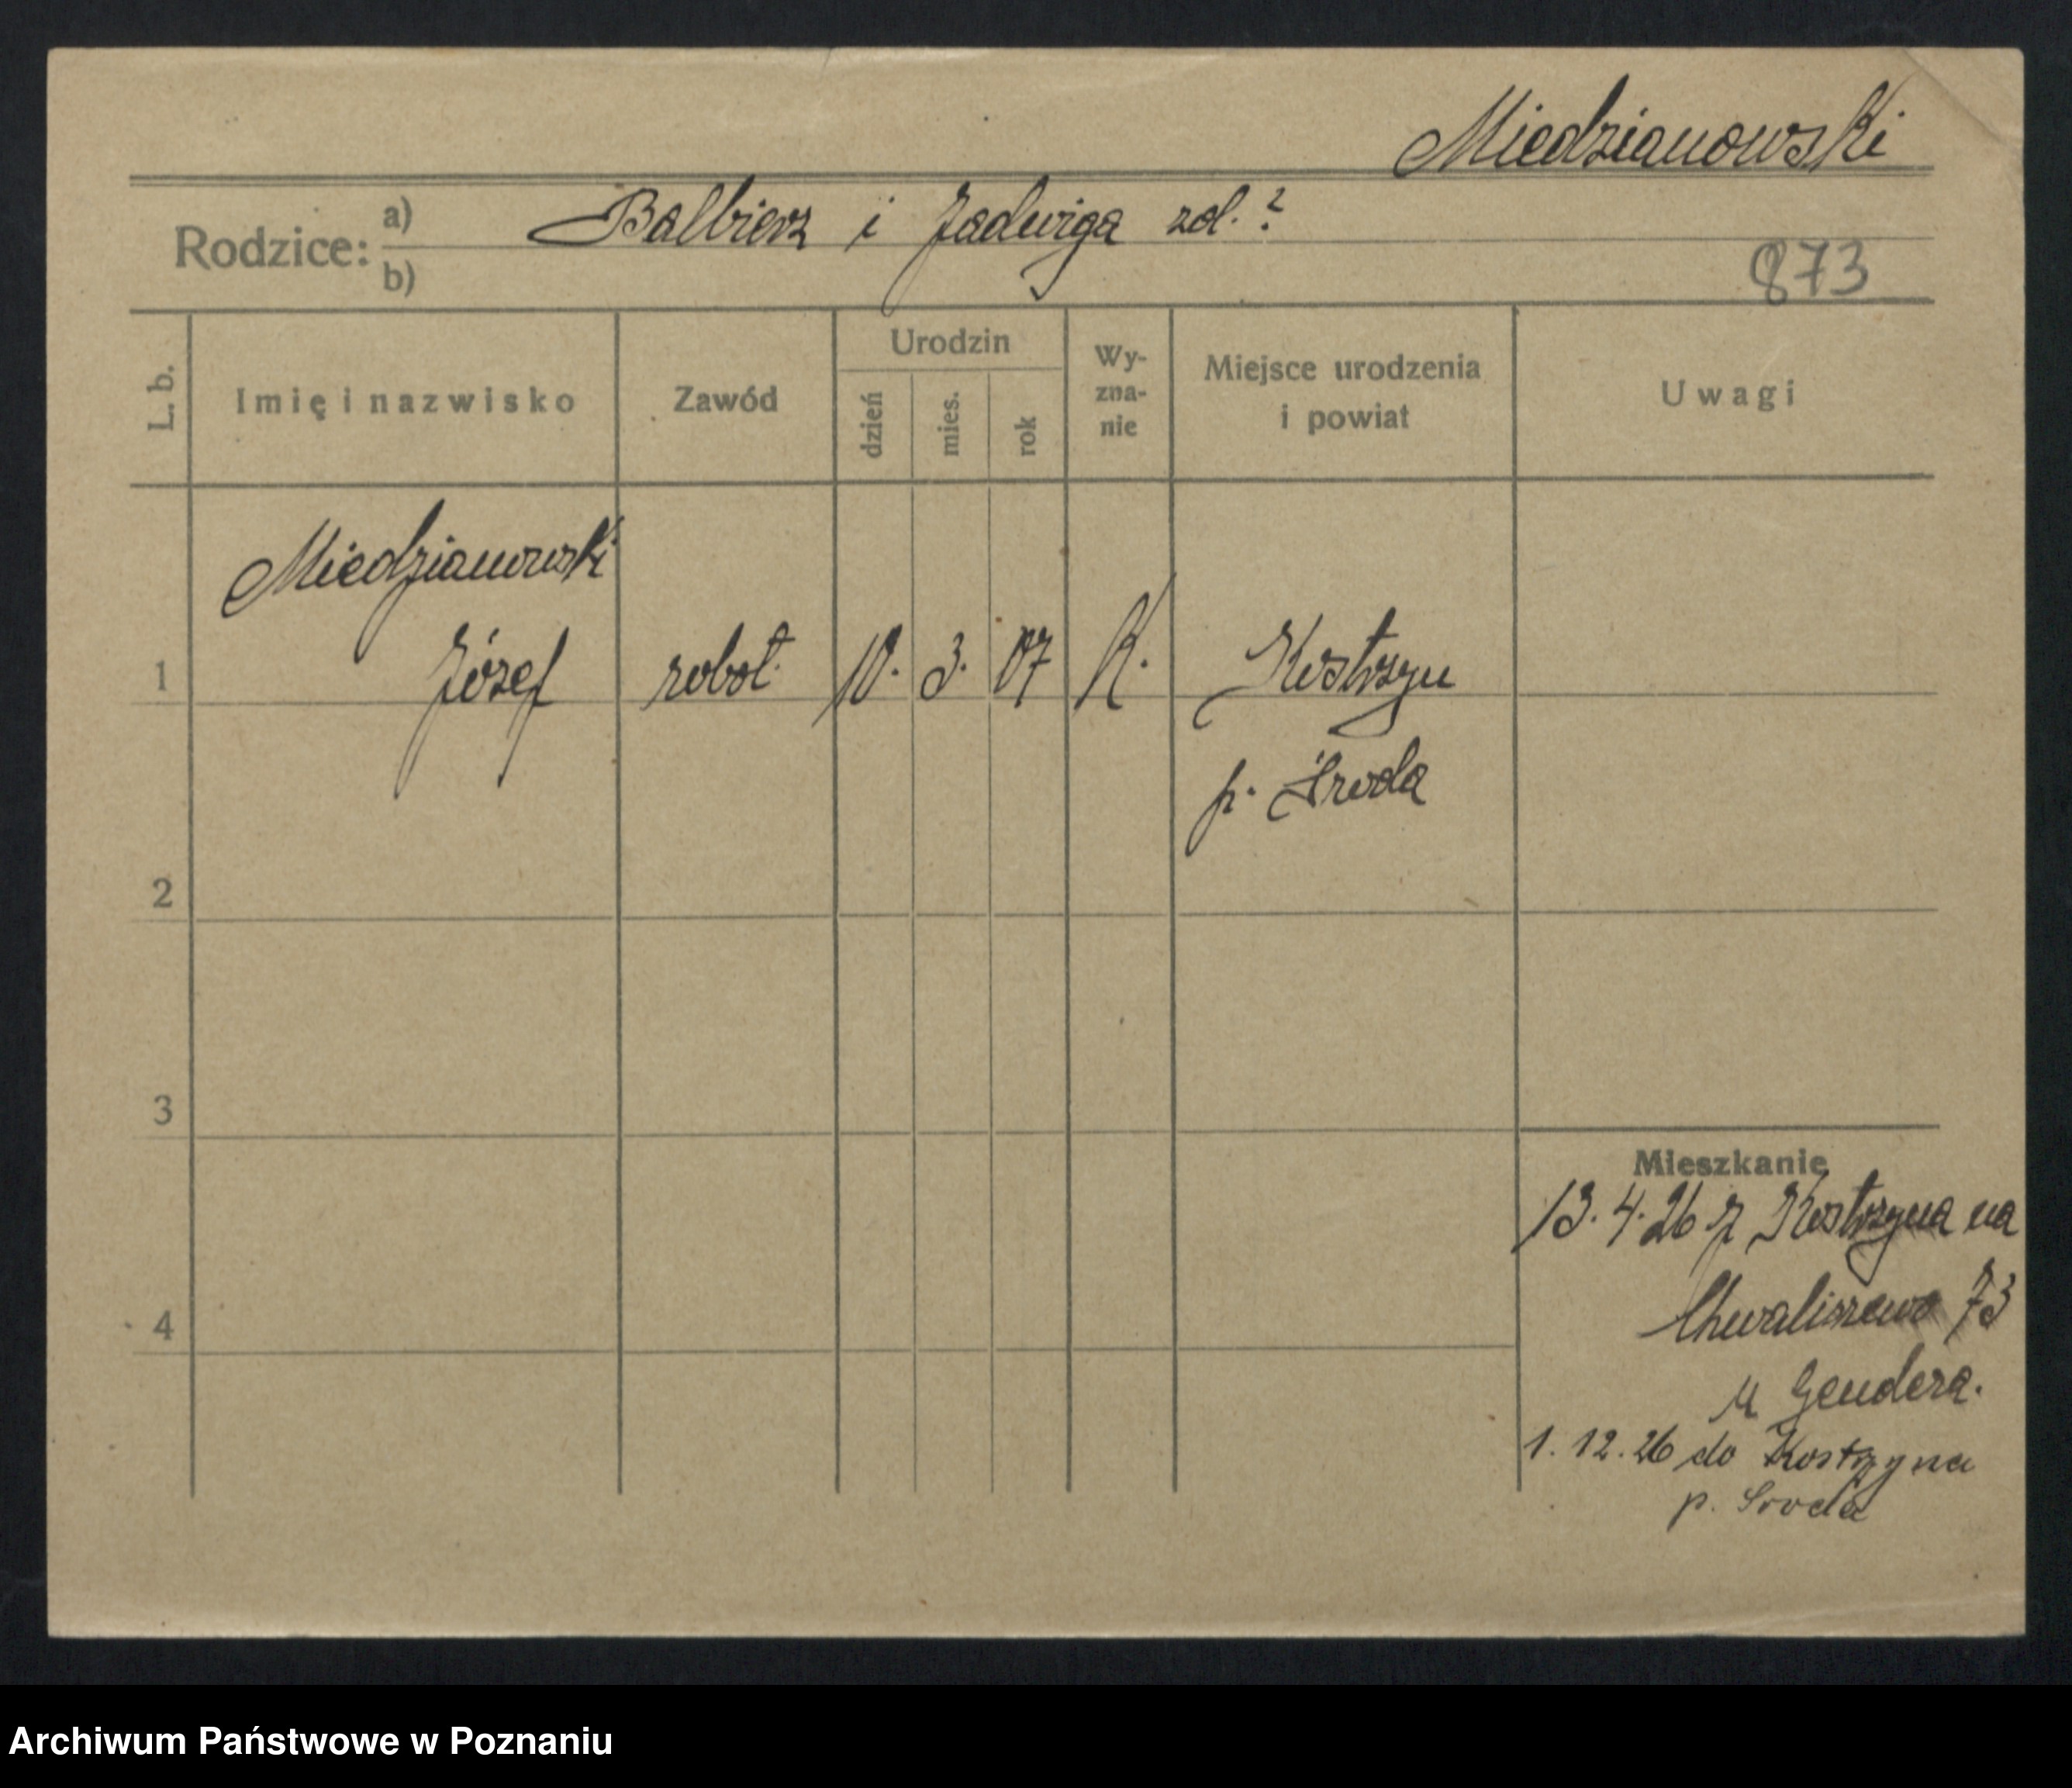 Miedzianowski
Rodzice: a) Balbierz i Jadwiga zd. ?
b)
873
L. b.
Imię i nazwisko
Zawód
Urodzin
dzień
mies.
rok
Wy-
zna-
nie
Miejsce urodzenia
i powiat
Uwagi
Miedzianowski
1 Józef robot. 10. 3. 07 K. Kostrzyn
p. Środa
2
3
4
Mieszkanie
13. 4. 26 z Kostrzyna na
Chwaliszewo 73
u Gendera.
1. 12. 26 do Kostrzyna
p. Sroda
Archiwum Państwowe w Poznaniu